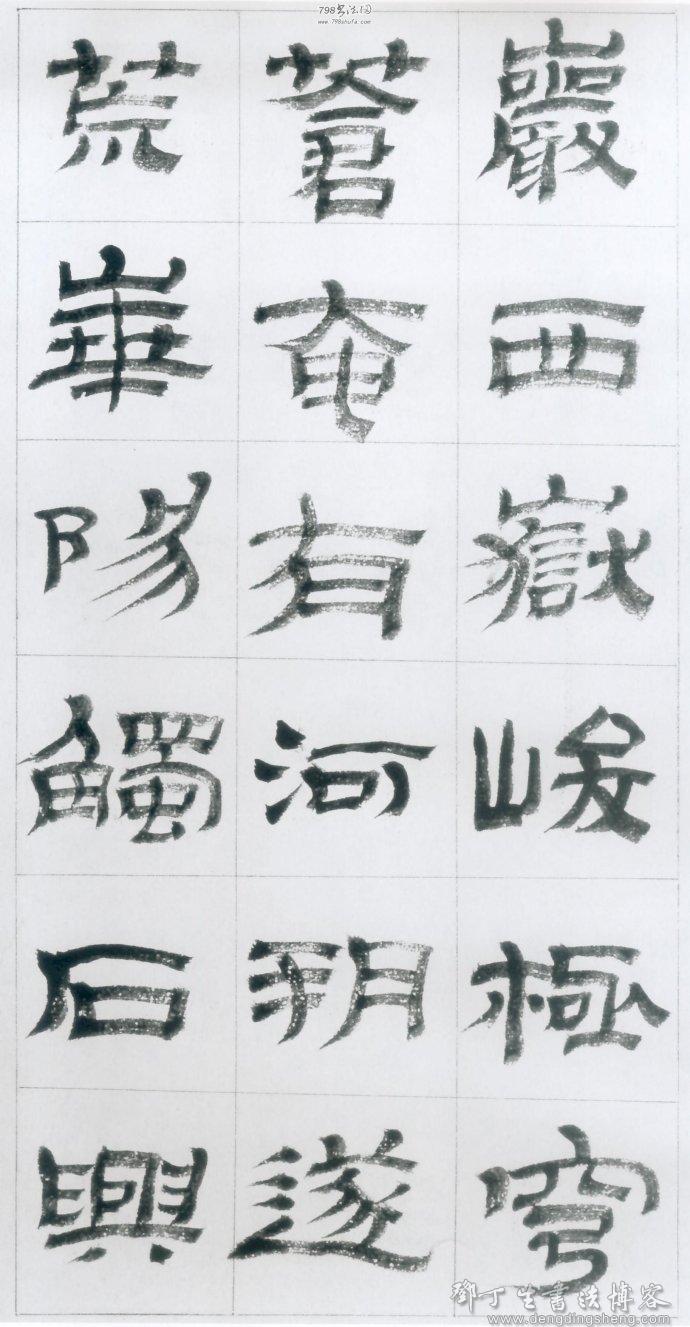 798书法网
www.798shufa.com
巖西嶽峻極穹
蒼奄有河朔遂
荒華陽觸石興
鄧丁生書法博客
www.dengdingsheng.com